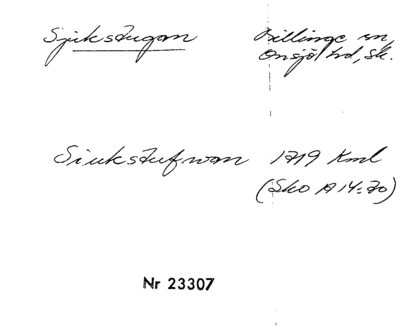 Sjukstugan
Billinge sn,
Onsjö hd, Sk.
Siukstufwan 1719 Kml
(Sko A 14:70)
Nr 23307